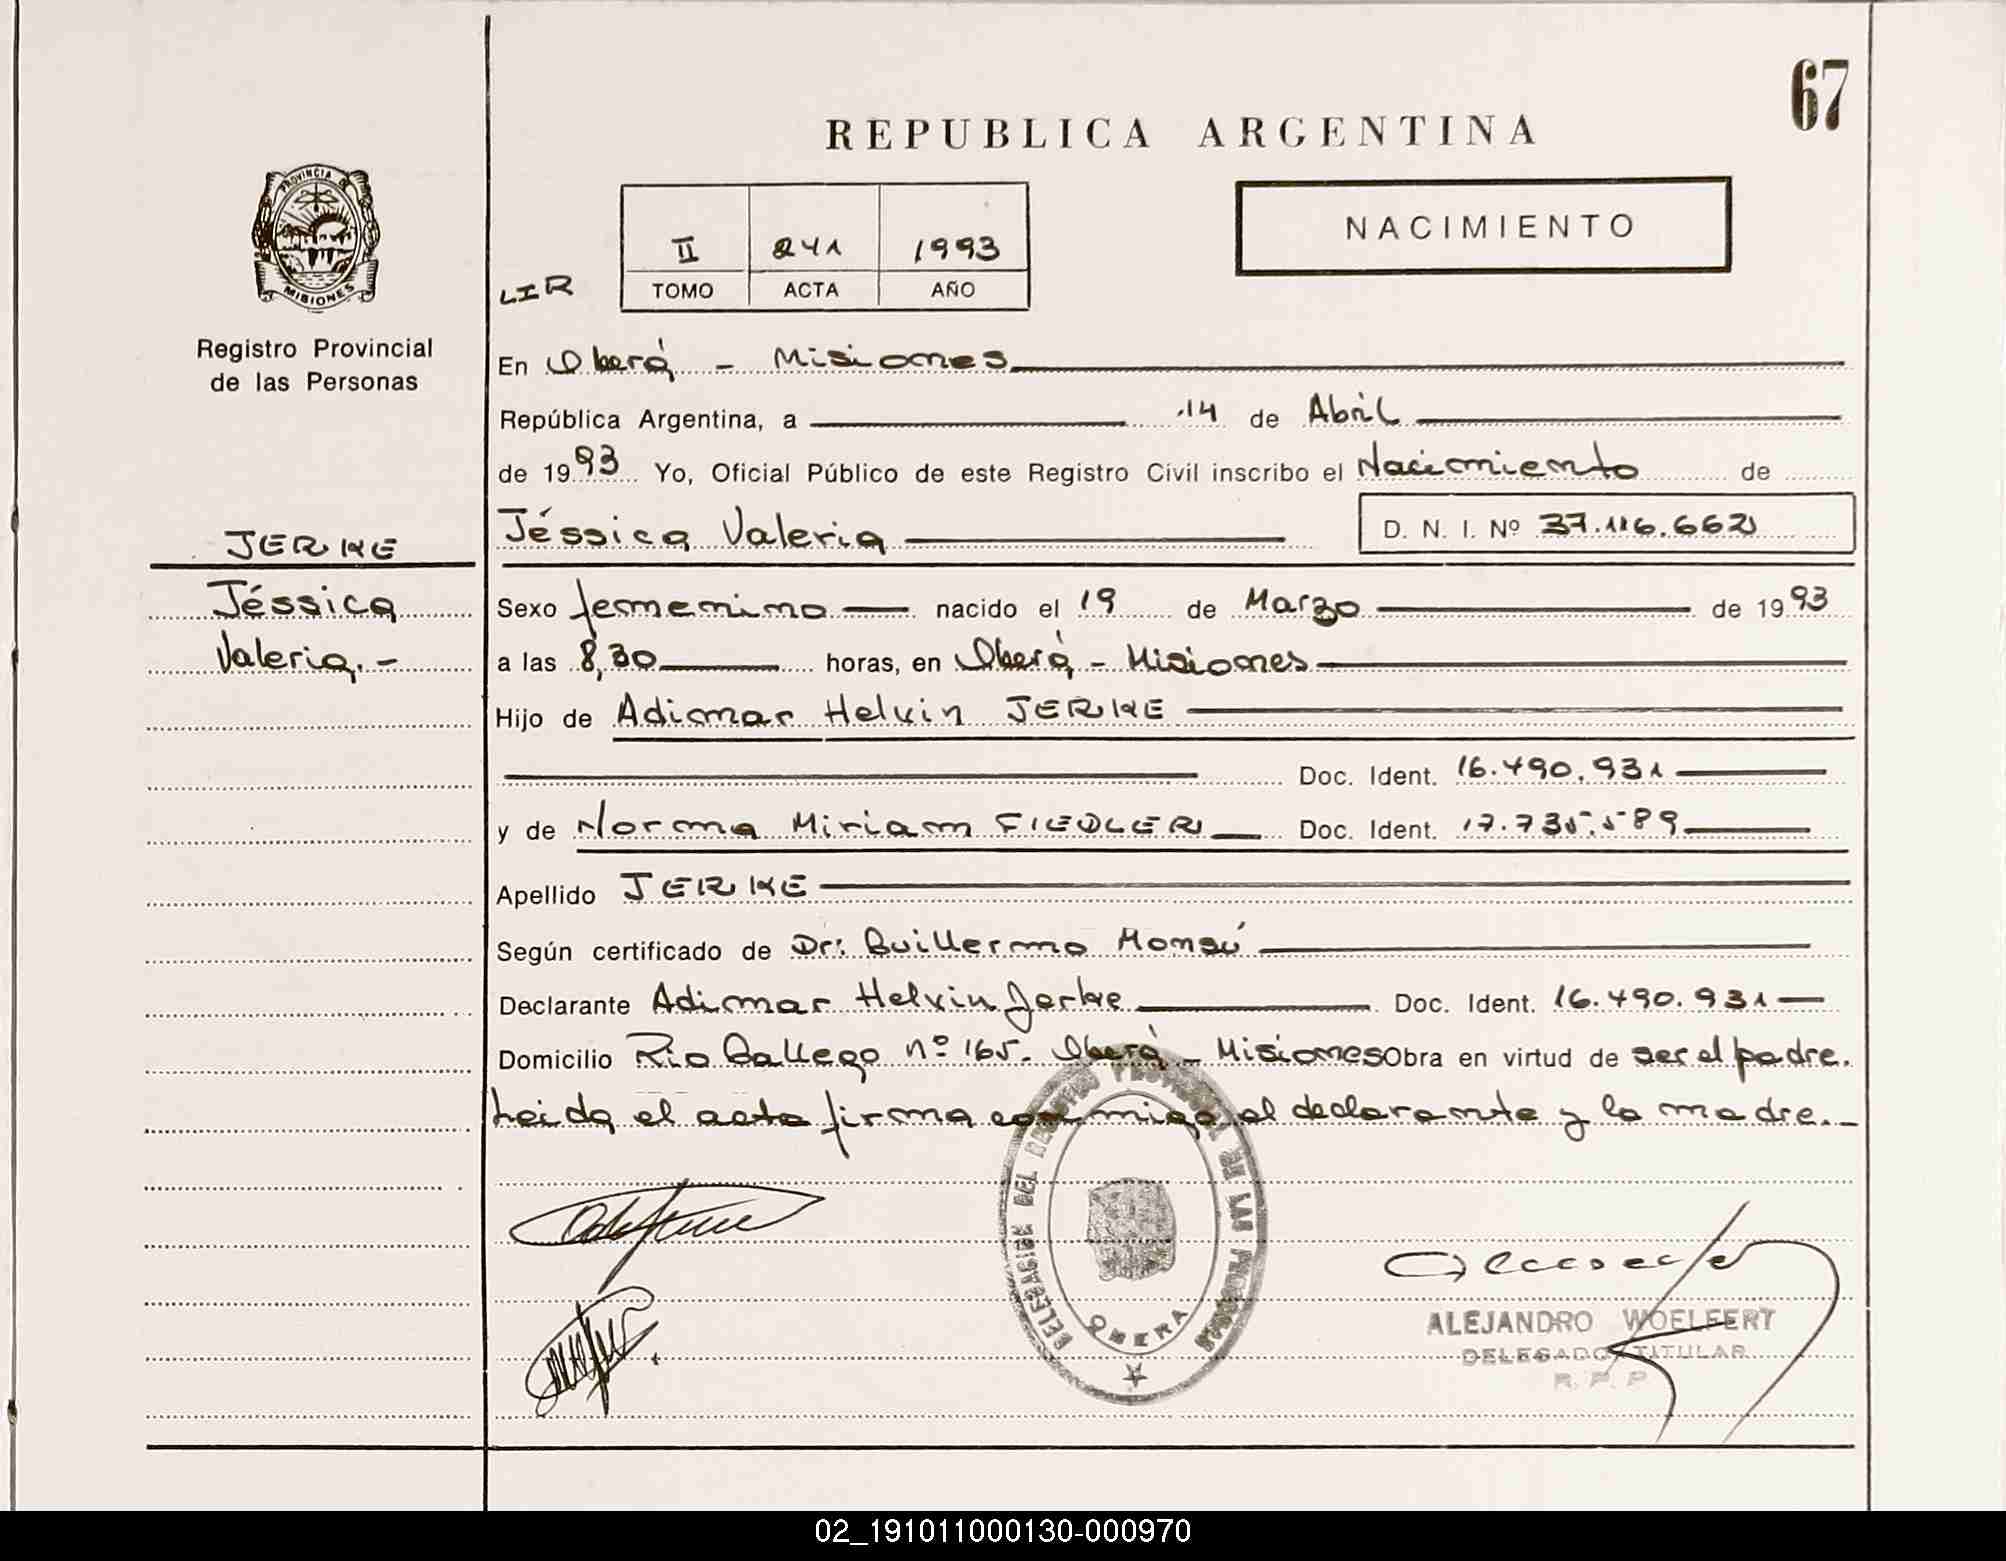 67
REPUBLICA ARGENTINA
PROVINCIA DE
MISIONES
Registro Provincial
de las Personas
NACIMIENTO
LIR
II 241 1993
TOMO ACTA AÑO
En Oberá - Misiones
República Argentina, a 14 de Abril
de 1993 Yo, Oficial Público de este Registro Civil inscribo el Nacimiento de
JERKE
Jéssica Valeria D. N. I. Nº 37.116.662
Jéssica
Valeria.-
Sexo femenino nacido el 19 de Marzo de 1993
a las 8,30 horas, en Oberá - Misiones
Hijo de Adimar Helvin JERKE
Doc. Ident. 16.490.931
y de Norma Miriam FIEDLER Doc. Ident. 17.735.589
Apellido JERKE
Según certificado de Dr: Guillermo Monsú
Declarante Adimar Helvin Jerke Doc. Ident. 16.490.931
Domicilio Rio Gallego nº 165. Oberá - Misiones Obra en virtud de ser el padre.
Leida el acta firma conmigo el declarante y la madre.-
DELEGACION DEL REGISTRO PROVINCIAL DE LAS PERSONAS
OBERA
ALEJANDRO WOELFERT
DELEGADO TITULAR
R. P. P
02_191011000130-000970